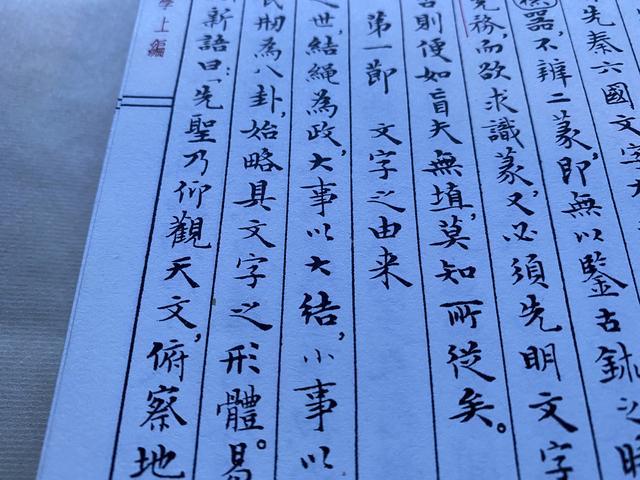 先秦六國文字
器,不辨二篆,即無以鑒古鉥之時
先務,而欲求識篆,又必須先明文字
否則便如盲夫無埴,莫知所從矣。
第一節 文字之由來
之世,結繩為政,大事以大結,小事以
為八卦,始略具文字之形體。易
新語曰:「先聖乃仰觀天文,俯察地
學上編